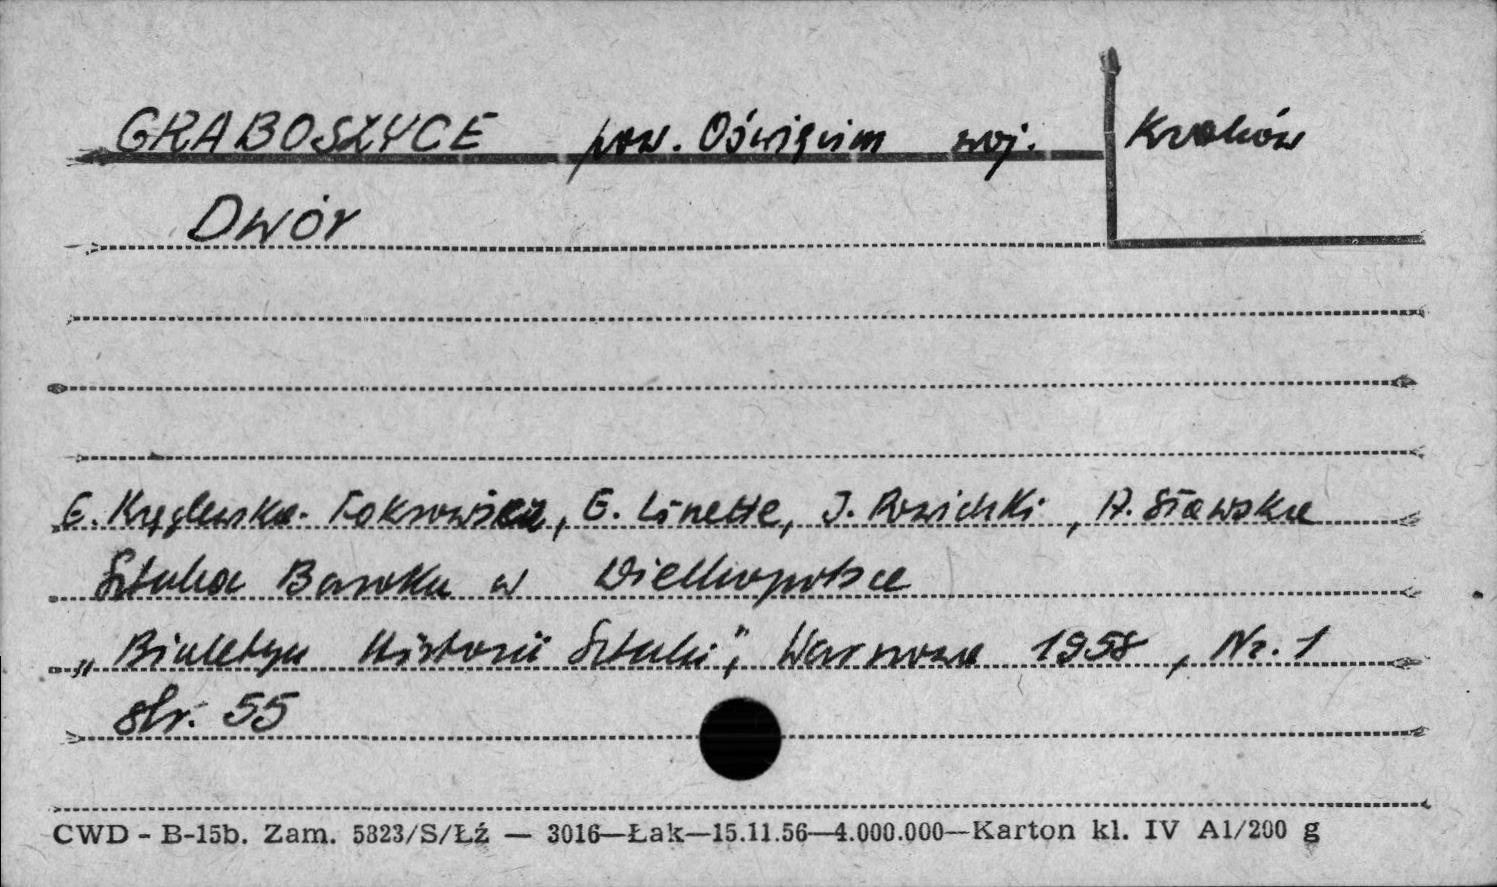 GRABOSZYCE pow. Oświęcim woj. Kraków
Dwór
E. Kręglewska-Foksowicz, E. Linette, J. Powidzki, A. Sławska
Sztuka Baroku w Wielkopolsce
„Biuletyn Historii Sztuki", Warszawa 1958, Nr. 1
str. 55
CWD - B-15b. Zam. 5823/S/Łź — 3016—Łak—15.11.56—4.000.000—Karton kl. IV A1/200 g